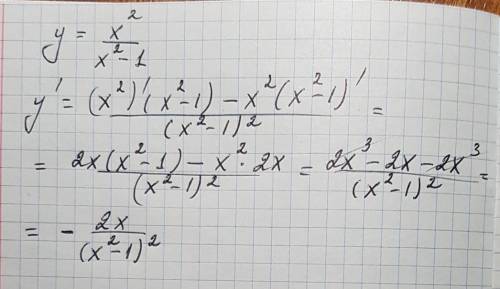 y = x²/(x²-1)
y' = ((x²)'(x²-1) - x²(x²-1)')/(x²-1)² =
= (2x(x²-1) - x²·2x)/(x²-1)² = (2x³-2x-2x³)/(x²-1)² =
= - 2x/(x²-1)²